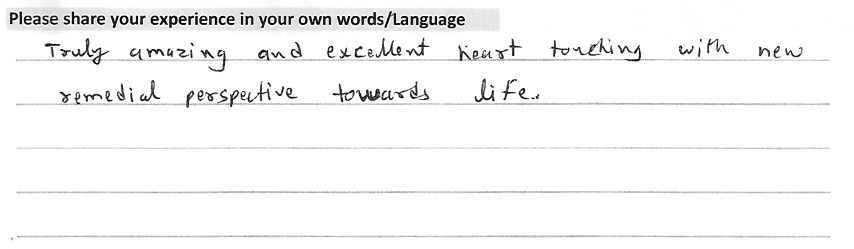 Please share your experience in your own words/Language
Truly amazing and excellent heart touching with new
remedial perspective towards life..